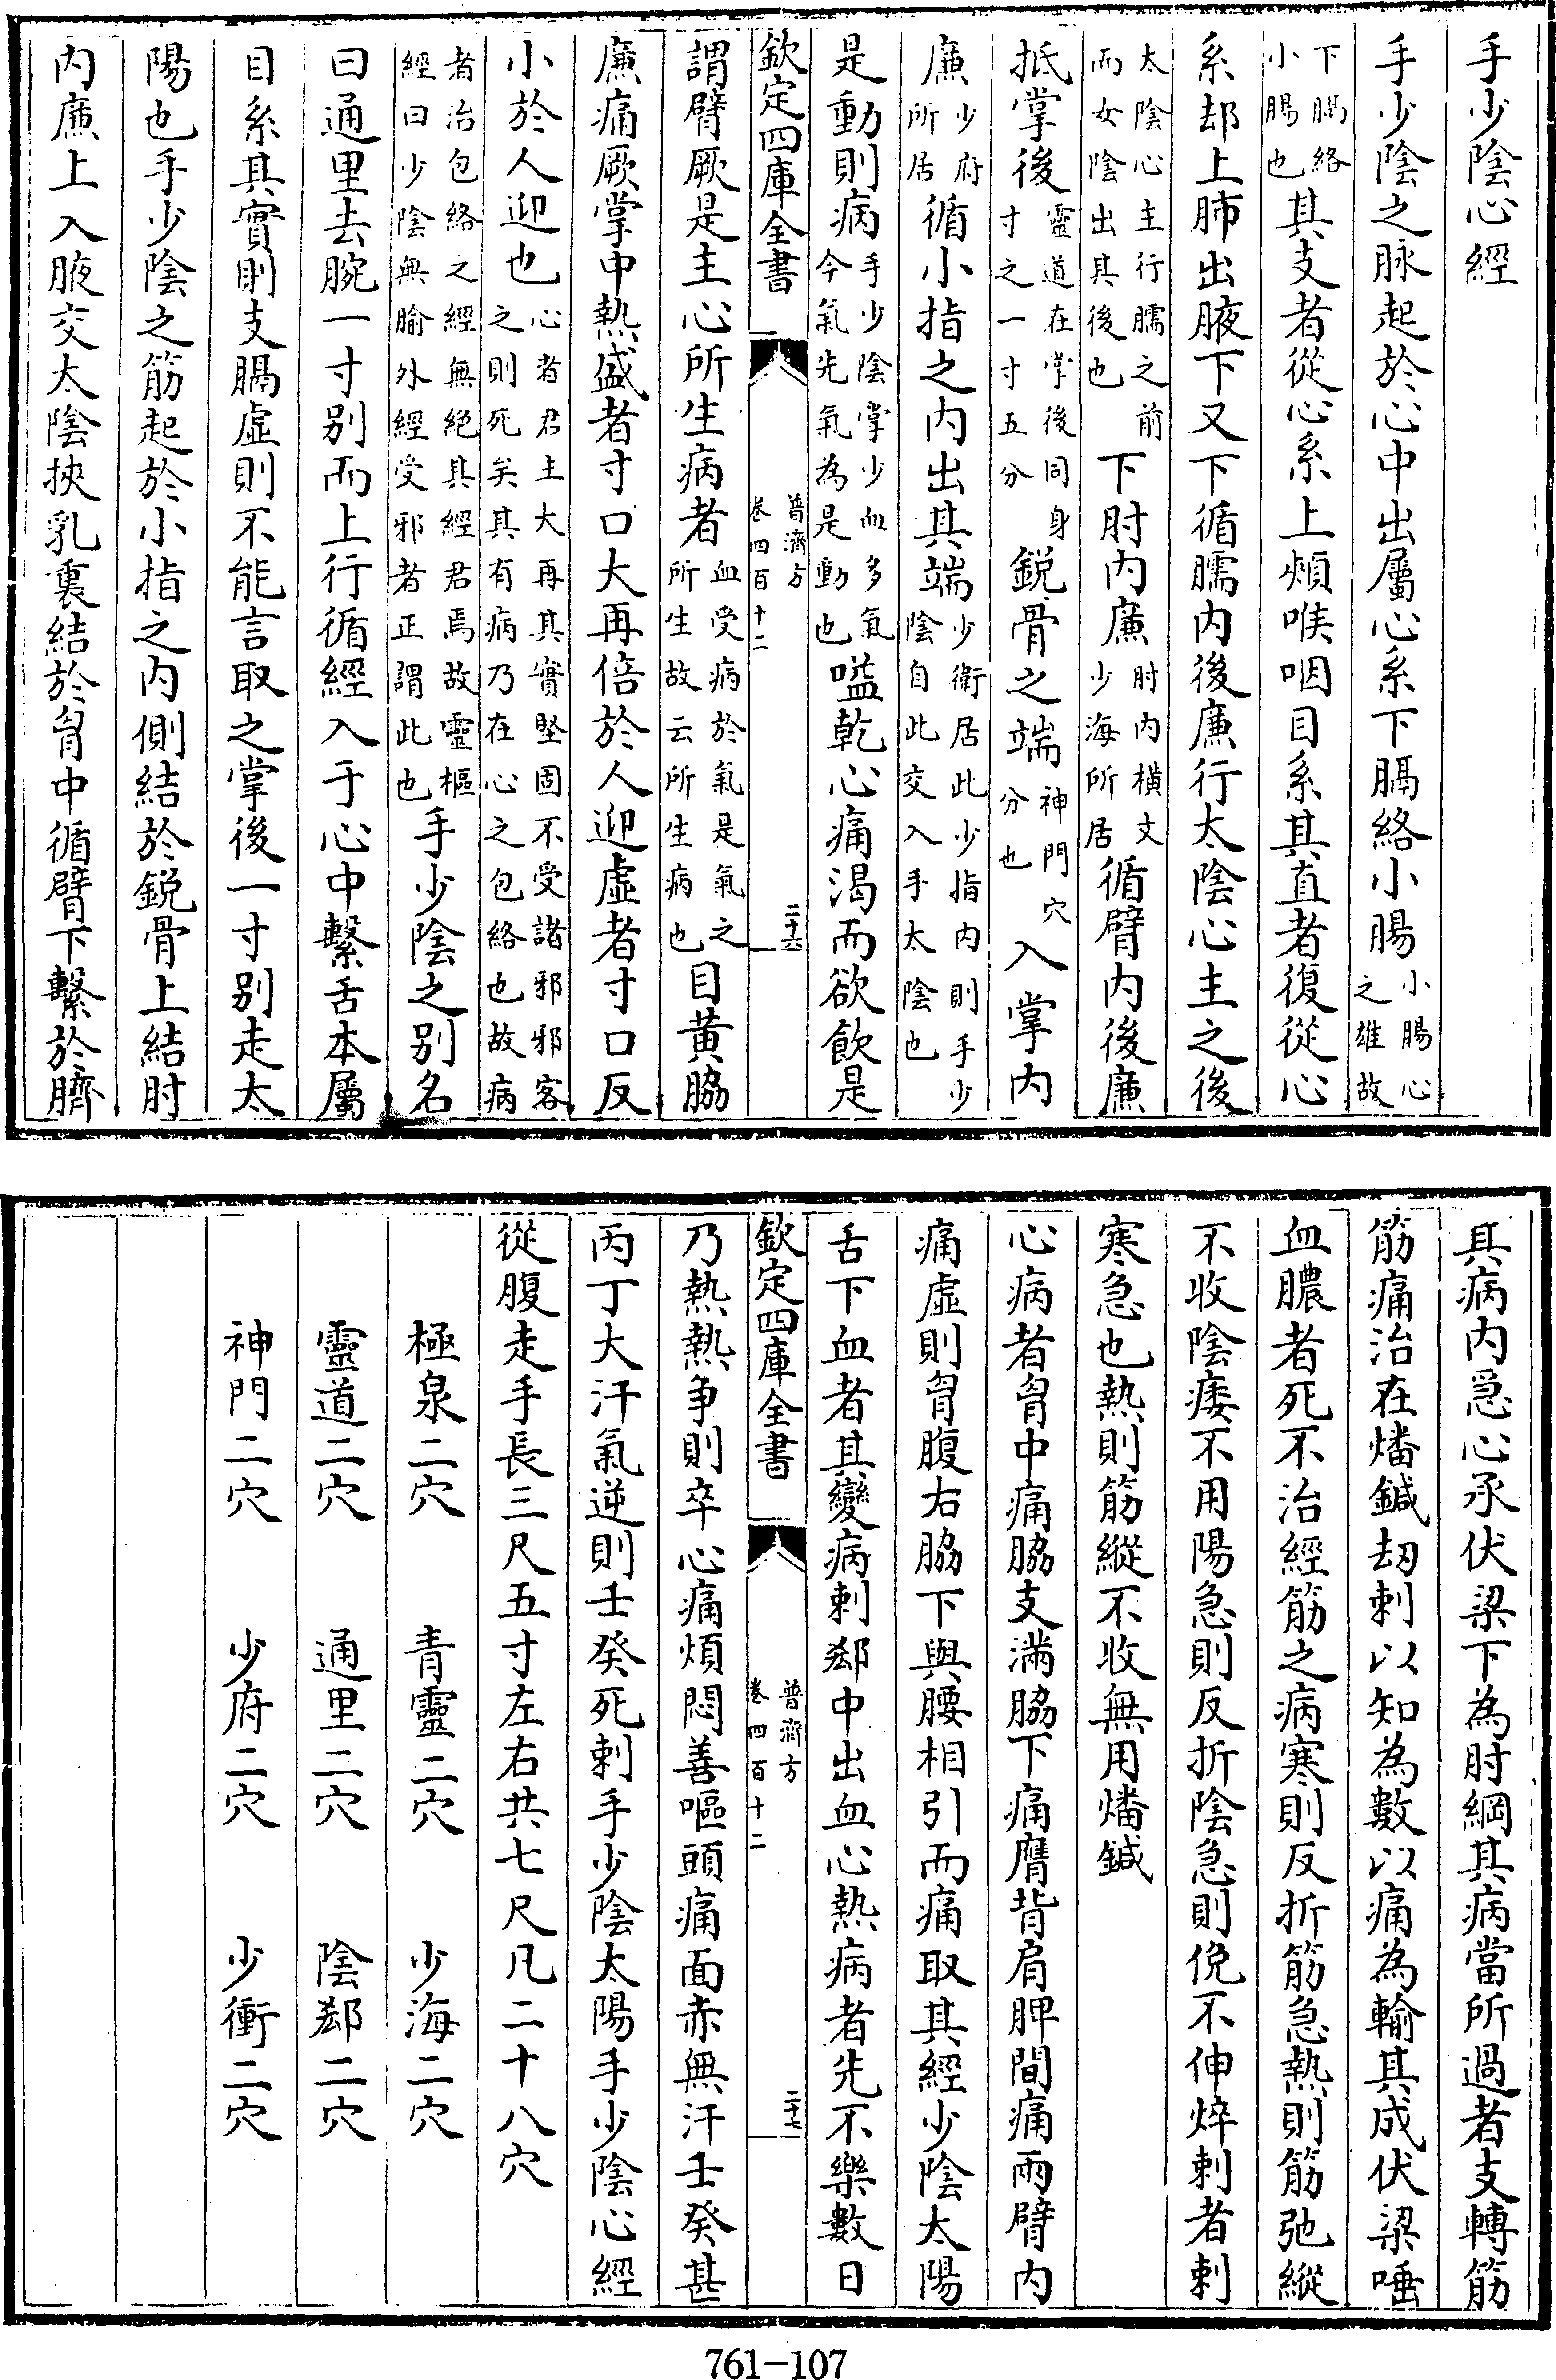 手少陰心經
手少陰之脉起於心中出屬心系下膈絡小腸小腸心之雄故
下膈絡小腸也其支者從心系上頰喉咽目系其直者復從心
系却上肺出腋下又下循臑内後廉行太陰心主之後
太陰心主行臑之前而女陰出其後也下肘内廉肘内橫文少海所居循臂内後廉
抵掌後靈道在掌後同身寸之一寸五分鋭骨之端神門穴分也入掌内
廉少府所居循小指之内出其端少衝居此少指内則手少陰自此交入手太陰也
是動則病手少陰掌少血多氣今氣先氣為是動也嗌乾心痛渴而欲飲是
欽定四庫全書 普濟方卷四百十二 二十六
謂臂厥是主心所生病者血受病於氣是氣之所生故云所生病也目黄脇
廉痛厥掌中熱盛者寸口大再倍於人迎虛者寸口反
小於人迎也心者君主大再其實堅固不受諸邪邪客之則死矣其有病乃在心之包絡也故病
者治包絡之經無絕其經君焉故靈樞經曰少陰無腧外經受邪者正謂此也手少陰之别名
曰通里去腕一寸别而上行循經入于心中繫舌本屬
目系其實則支膈虛則不能言取之掌後一寸别走太
陽也手少陰之筋起於小指之内側結於鋭骨上結肘
内廉上入腋交太陰挾乳裏結於胷中循臂下繫於臍
其病内急心承伏梁下為肘綱其病當所過者支轉筋
筋痛治在燔鍼刧刺以知為數以痛為輸其成伏梁唾
血膿者死不治經筋之病寒則反折筋急熱則筋弛縱
不收陰痿不用陽急則反折陰急則俛不伸焠刺者刺
寒急也熱則筋縱不收無用燔鍼
心病者胷中痛脇支滿脇下痛膺背肩胛間痛兩臂内
痛虛則胷腹右脇下與腰相引而痛取其經少陰太陽
舌下血者其變病刺郄中出血心熱病者先不樂數日
欽定四庫全書 普濟方卷四百十二 二十七
乃熱熱争則卒心痛煩悶善嘔頭痛面赤無汗壬癸甚
丙丁大汗氣逆則壬癸死刺手少陰太陽手少陰心經
從腹走手長三尺五寸左右共七尺凡二十八穴
極泉二穴 青靈二穴 少海二穴
靈道二穴 通里二穴 陰郄二穴
神門二穴 少府二穴 少衝二穴
761-107